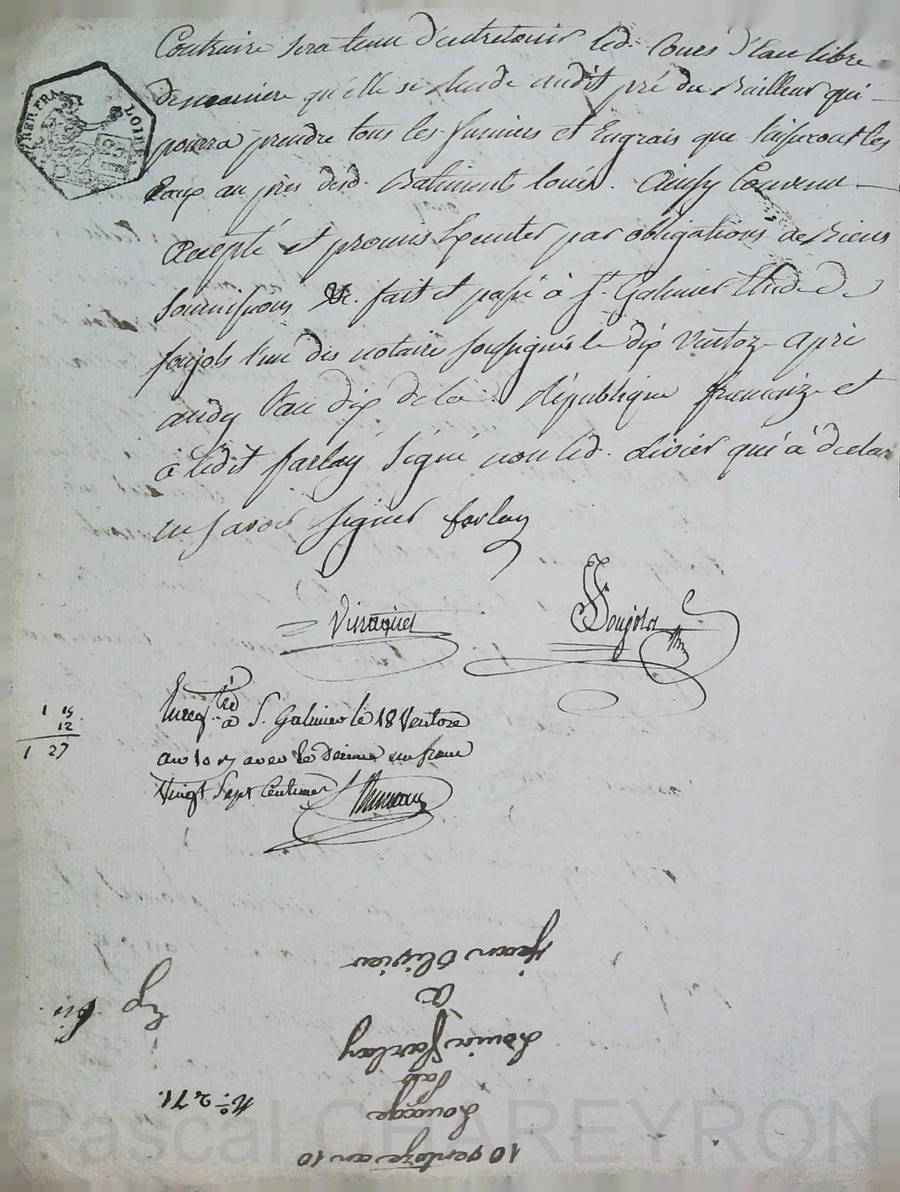 Contraire sera tenu d'entretenir led. Cours d'Eau libre
demaniere qu'elle se rende audit pré du Bailleur qui
pourra prendre tous les fumiers et Engrais que laisseront les
Eaux au près desd. Batiments loués. Ainsy Convenu
accepté et promis Executer par obligations de Biens
soumissions &c. fait et passé à St. Galmier Etude de
soujols l'un des notaire soussignés le dix Ventoz apris
midy l'an dix de la république francaize et
à ledit farlay signé non led. olivier qui à declar
ne savoir signer farlay
Soujols
Enreg.tré à St. Galmier le 18 Ventose
an 10 avec le decime un franc
Vingt Sept Centimes
1 15
12
1 27
REP. FRA
LOIRE
10 ventoze an 10
Louage
par
Louis farlay
a
jean olivier
N.o 271.
Exp
Pascal CHAREYRON